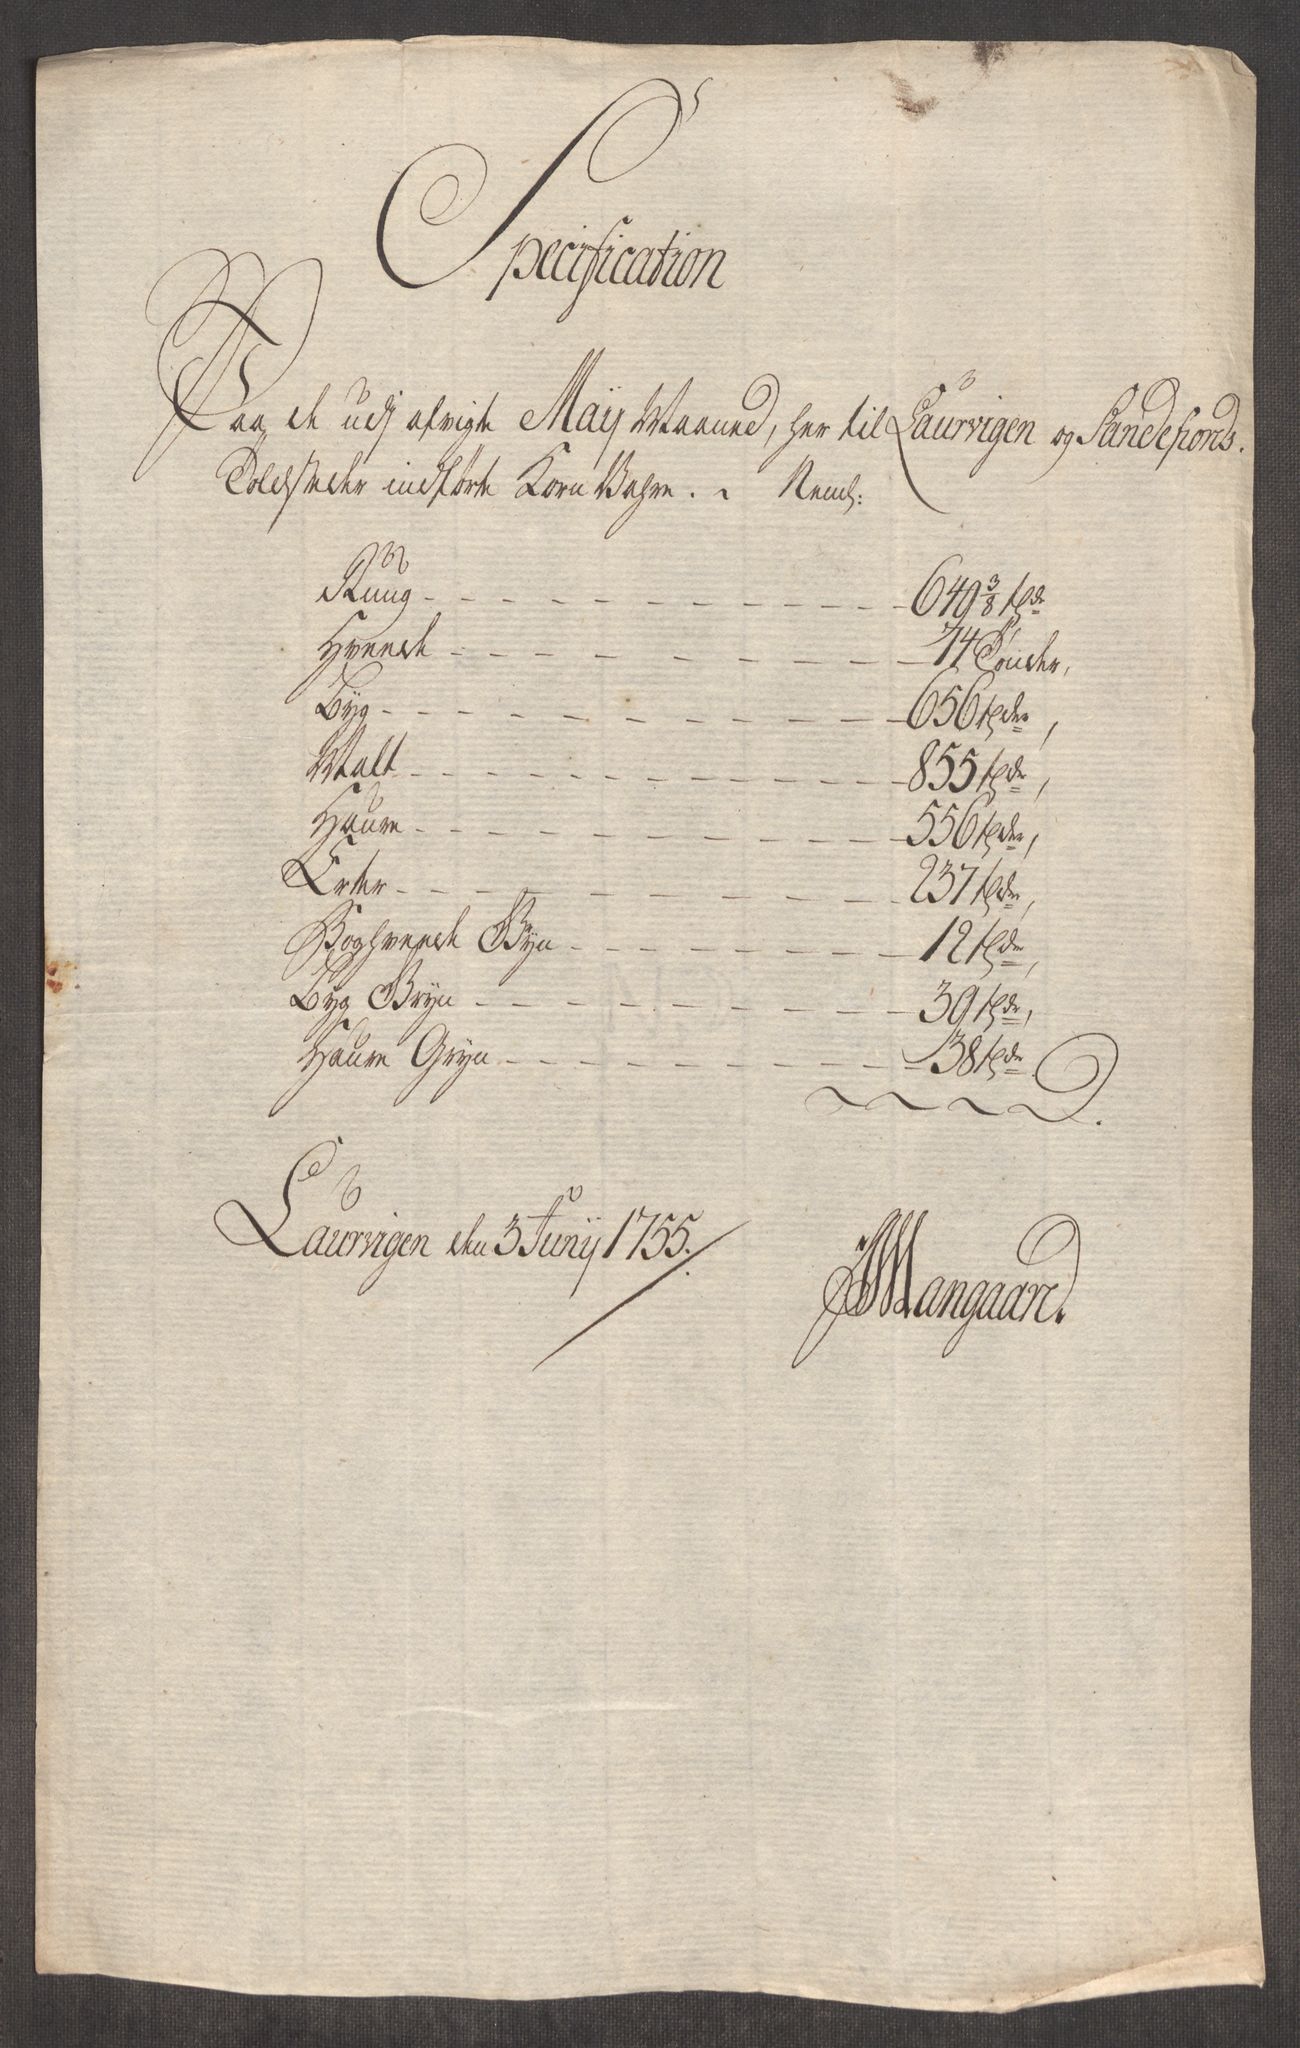 Specification
Paa de udj afvigte Maij Maaned, her til Laurvigen og Sandefiords.
Toldsteder indførte Korn Vahre. Neml:
Rüug 649 3/8 tdr
Hveede 74 Tønder,
Byg 656 tdr,
Malt 855 tdr,
Haure 556 tdr,
Erter 237 tdr,
Boghveede Gryn 12 tdr,
Byg Gryn 39 tdr,
Haure Gryn 38 tdr
Laurvigen den 3 Junij 1755.
Mangaard